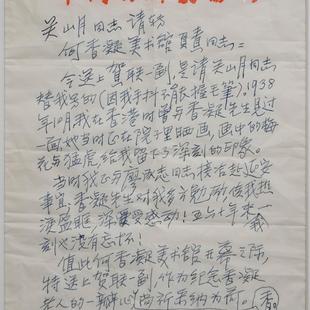 关山月同志 请转
何香凝美术馆负责同志:
今送上贺联一副,是请关山月同志
替我写的(因我手抖,不能握毛笔)1938
年10月我在香港时曾与香凝先生见过
一面她当时正在院理晒画,画中的梅
花与猛虎给我留下了深刻的印象。
当时我正与廖承志同志接洽赴延安
事宜,香凝先生对我多方勉励使我热
泪盈眶,深受感动!五六十年来一
刻也没有忘怀!
值此何香凝美术馆开幕之际,
特送上贺联一副,作为纪念香凝
老人的一瓣心 尚祈采纳为荷。